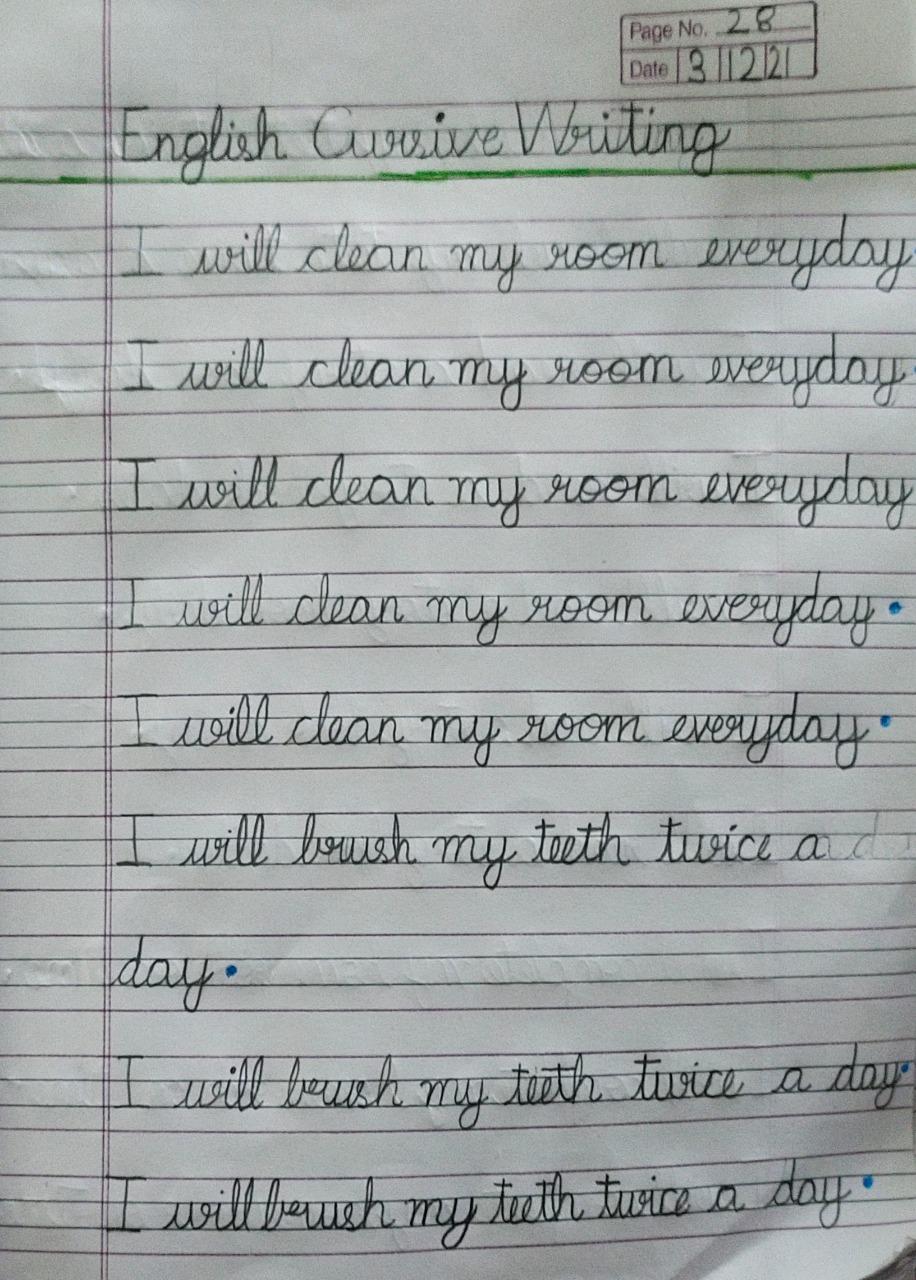 Page No. 28
Date 3/12/21
English Cursive Writing
I will clean my room everyday.
I will clean my room everyday.
I will clean my room everyday
I will clean my room everyday.
I will clean my room everyday.
I will brush my teeth twice a d
day.
I will brush my teeth twice a day.
I will brush my teeth twice a day.